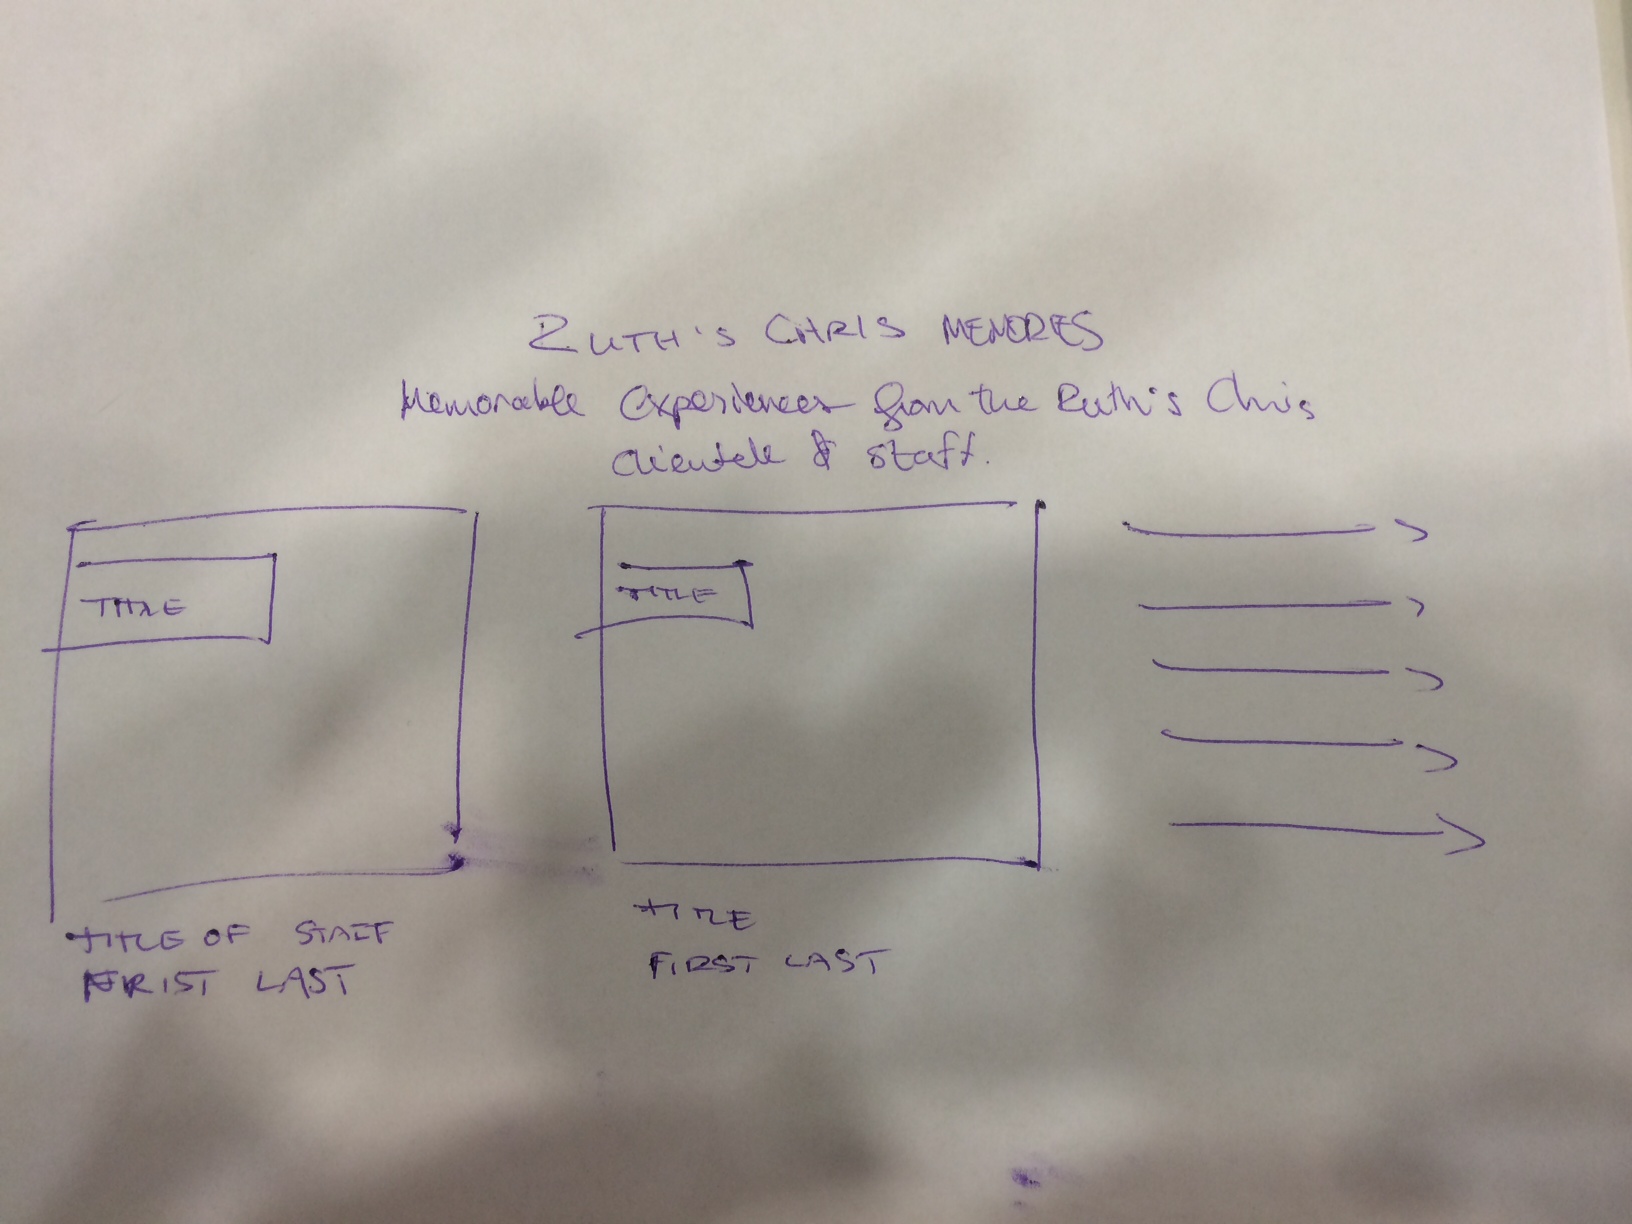 RUTH'S CHRIS MEMORIES
Memorable experiences from the Ruth's Chris
clientele & staff.
TITLE
TITLE
TITLE OF STAFF
FRIST LAST
TITLE
FIRST LAST